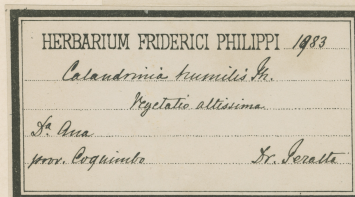 HERBARIUM FRIDERICI PHILIPPI 1983
Calandrinia humilis Ph.
Vegetatio altissima
Da Ana
prov. Coquimbo Dr. Peralta